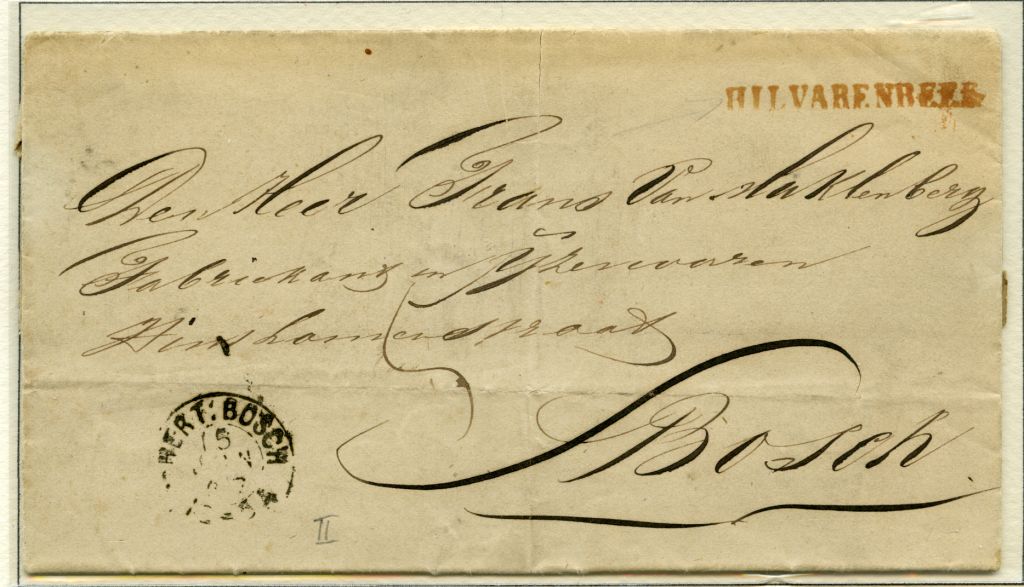 HILVARENBEEK
Den Heer Frans Van Maklenberg
Fabriekant in Yzerwaren
Hinthamerstraat
5
S Bosch
HERT: BOSCH
5
II